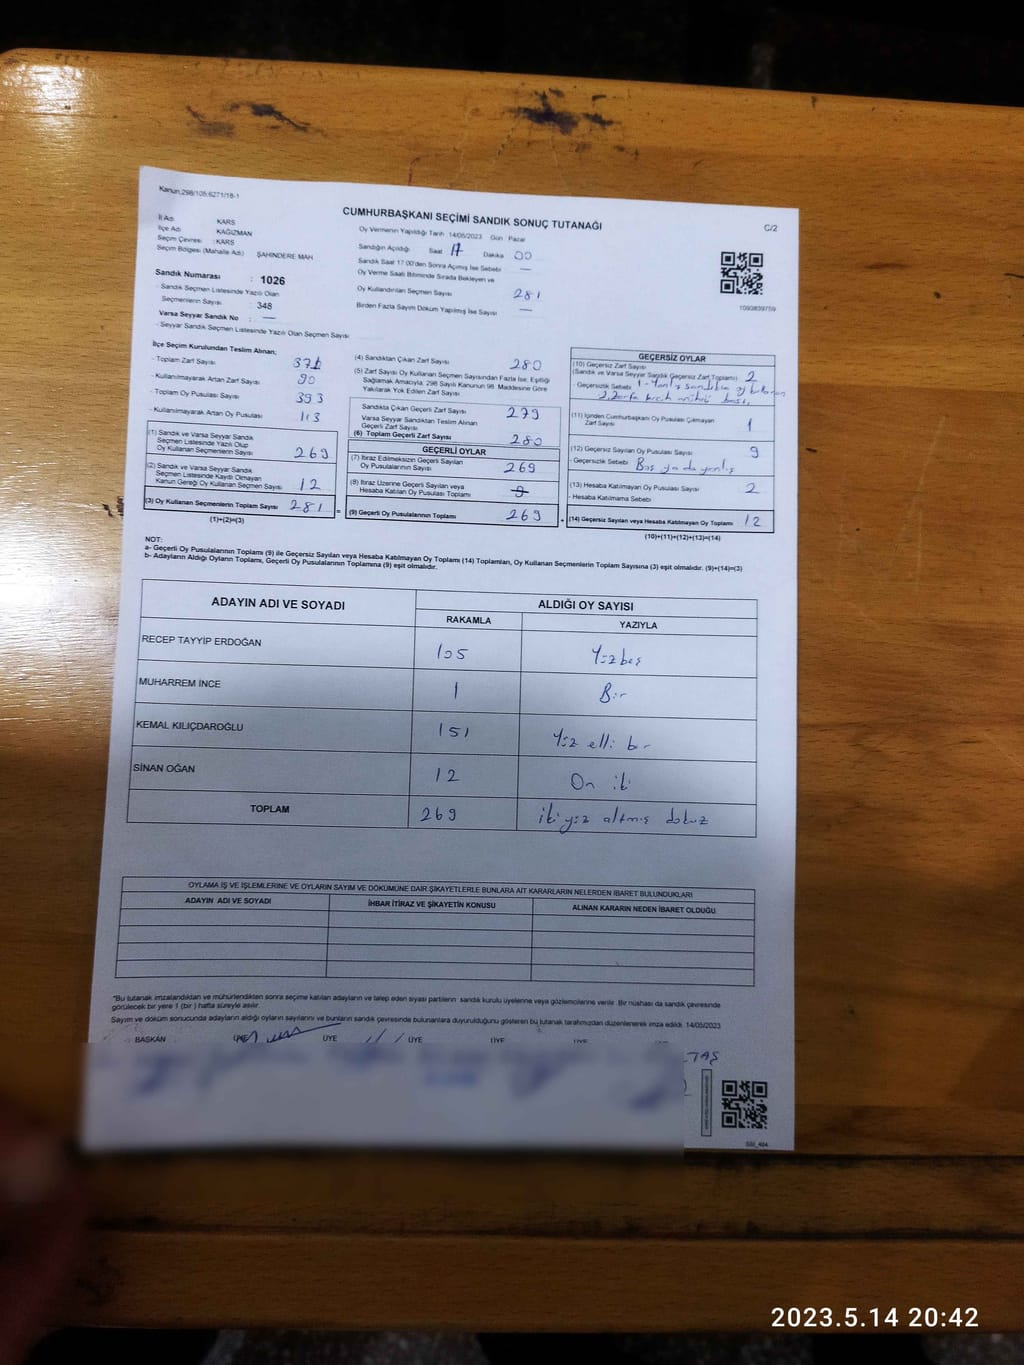 Kanun:298/105;6271/18-1
CUMHURBAŞKANI SEÇİMİ SANDIK SONUÇ TUTANAĞI
C/2
İl Adı KARS
İlçe Adı KAĞIZMAN
Seçim Çevresi :KARS
Seçim Bölgesi (Mahalle Adı) ŞAHİNDERE MAH
Oy Vermenin Yapıldığı Tarih 14/05/2023 Gün Pazar
Sandığın Açıldığı Saat 17 Dakika 00
Sandık Saat 17:00'den Sonra Açılmış İse Sebebi —
Oy Verme Saati Bitiminde Sırada Bekleyen ve
Oy Kullandırılan Seçmen Sayısı 281
Birden Fazla Sayım Döküm Yapılmış İse Sayısı —
1093839759
Sandık Numarası : 1026
- Sandık Seçmen Listesinde Yazılı Olan
Seçmenlerin Sayısı 348
Varsa Seyyar Sandık No : —
- Seyyar Sandık Seçmen Listesinde Yazılı Olan Seçmen Sayısı
İlçe Seçim Kurulundan Teslim Alınan;
- Toplam Zarf Sayısı
- Kullanılmayarak Artan Zarf Sayısı 90
- Toplam Oy Pusulası Sayısı 393
- Kullanılmayarak Artan Oy Pusulası 113
(1) Sandık ve Varsa Seyyar Sandık
Seçmen Listesinde Yazılı Olup
Oy Kullanan Seçmenlerin Sayısı 269
(2) Sandık ve Varsa Seyyar Sandık
Seçmen Listesinde Kayıtlı Olmayan
Kanun Gereği Oy Kullanan Seçmen Sayısı 12
(3) Oy Kullanan Seçmenlerin Toplam Sayısı 281 =
(1)+(2)=(3)
(4) Sandıktan Çıkan Zarf Sayısı 280
(5) Zarf Sayısı Oy Kullanan Seçmen Sayısından Fazla İse, Eşitliği
Sağlamak Amacıyla; 298 Sayılı Kanunun 98. Maddesine Göre
Yakılarak Yok Edilen Zarf Sayısı
Sandıkta Çıkan Geçerli Zarf Sayısı 279
Varsa Seyyar Sandıktan Teslim Alınan
Geçerli Zarf Sayısı
(6) Toplam Geçerli Zarf Sayısı 280
GEÇERLİ OYLAR
(7) İtiraz Edilmeksizin Geçerli Sayılan
Oy Pusulalarının Sayısı 269
(8) İtiraz Üzerine Geçerli Sayılan veya
Hesaba Katılan Oy Pusulası Toplamı
(9) Geçerli Oy Pusulalarının Toplamı 269 +
GEÇERSİZ OYLAR
(10) Geçersiz Zarf Sayısı
(Sandık ve Varsa Seyyar Sandık Geçersiz Zarf Toplamı) 2
- Geçersizlik Sebebi 1- Yanlış sandıkta oy kullanan
2.
(11) İçinden Cumhurbaşkanı Oy Pusulası Çıkmayan
Zarf Sayısı 1
(12) Geçersiz Sayılan Oy Pusulası Sayısı 9
- Geçersizlik Sebebi Boş ya da yanlış
(13) Hesaba Katılmayan Oy Pusulası Sayısı 2
- Hesaba Katılmama Sebebi
(14) Geçersiz Sayılan veya Hesaba Katılmayan Oy Toplamı 12
(10)+(11)+(12)+(13)=(14)
NOT:
a- Geçerli Oy Pusulalarının Toplamı (9) ile Geçersiz Sayılan veya Hesaba Katılmayan Oy Toplamı (14) Toplamları, Oy Kullanan Seçmenlerin Toplam Sayısına (3) eşit olmalıdır. (9)+(14)=(3)
b- Adayların Aldığı Oyların Toplamı, Geçerli Oy Pusulalarının Toplamına (9) eşit olmalıdır.
ADAYIN ADI VE SOYADI ALDIĞI OY SAYISI
RAKAMLA YAZIYLA
RECEP TAYYİP ERDOĞAN 105 Yüzbeş
MUHARREM İNCE 1 Bir
KEMAL KILIÇDAROĞLU 151 Yüz elli bir
SİNAN OĞAN 12 On iki
TOPLAM 269 iki yüz altmış dokuz
OYLAMA İŞ VE İŞLEMLERİNE VE OYLARIN SAYIM VE DÖKÜMÜNE DAİR ŞİKAYETLERLE BUNLARA AİT KARARLARIN NELERDEN İBARET BULUNDUKLARI
ADAYIN ADI VE SOYADI İHBAR İTİRAZ VE ŞİKAYETİN KONUSU ALINAN KARARIN NEDEN İBARET OLDUĞU
"Bu tutanak imzalandıktan ve mühürlendikten sonra seçime katılan adayların ve talep eden siyasi partilerin sandık kurulu üyelerine veya gözlemcilerine verilir. Bir nüshası da sandık çevresinde
görülecek bir yere 1 (bir) hafta süreyle asılır.
Sayım ve döküm sonucunda adayların aldığı oyların sayılarını ve bunların sandık çevresinde bulunanlara duyurulduğunu gösteren bu tutanak tarafımızdan düzenlenerek imza edildi. 14/05/2023
BAŞKAN ÜYE ÜYE ÜYE ÜYE ÜYE
TAŞ
2023.5.14 20:42